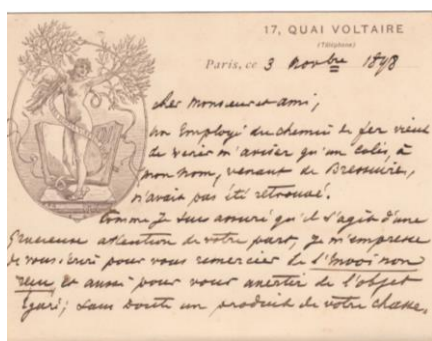 17, QUAI VOLTAIRE
(Téléphone)
Paris, ce 3 Novbre 1898
cher Monsieur et ami,
un Employé du chemin de fer vient
de venir m'aviser qu'un colis, à
mon nom, venant de Bressuire,
n'avait pas été retrouvé.
Comme je suis assuré qu'il s'agit d'une
Gracieuse attention de votre part, je m'empresse
de vous écrire pour vous remercier de l'Envoi non
reçu, et aussi pour vous avertir de l'objet
égaré; sans doute un produit de votre chasse.